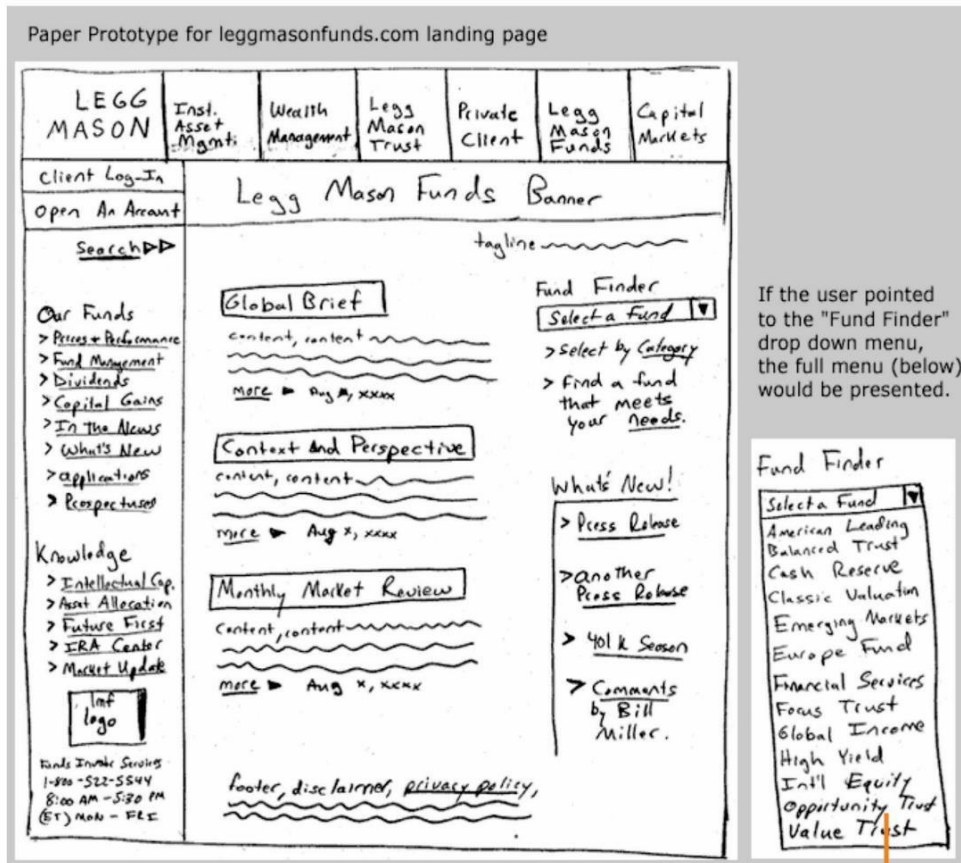 Paper Prototype for leggmasonfunds.com landing page
LEGG
MASON
Inst.
Asset
Mgmt.
Wealth
Management
Legg
Mason
Trust
Private
Client
Legg
Mason
Funds
Capital
Markets
Client Log-In
Open An Account
Search
Legg Mason Funds Banner
tagline
Our Funds
> Prices + Performance
> Fund Management
> Dividends
> Capital Gains
> In The News
> What's New
> applications
> Prospectuses
Knowledge
> Intellectual Cap.
> Asset Allocation
> Future First
> IRA Center
> Market Update
lmf
logo
Funds Services
1-800-522-5544
8:00 AM - 5:30 PM
(ET) MON - FRI
Global Brief
content, content
more ▶ Aug xxxx
Context and Perspective
content, content
more ▶ Aug x, xxxx
Monthly Market Review
Content, content
more ▶ Aug x, xxxx
footer, disclaimer, privacy policy,
Fund Finder
Select a Fund ▼
> Select by Category
> Find a fund
that meets
your needs.
What's New!
> Press Release
> another
Press Release
> 401 k Season
> Comments
by Bill
Miller.
If the user pointed
to the "Fund Finder"
drop down menu,
the full menu (below)
would be presented.
Fund Finder
Select a Fund ▼
American Leading
Balanced Trust
Cash Reserve
Classic Valuation
Emerging Markets
Europe Fund
Financial Services
Focus Trust
Global Income
High Yield
Int'l Equity
Opportunity Trust
Value Trust